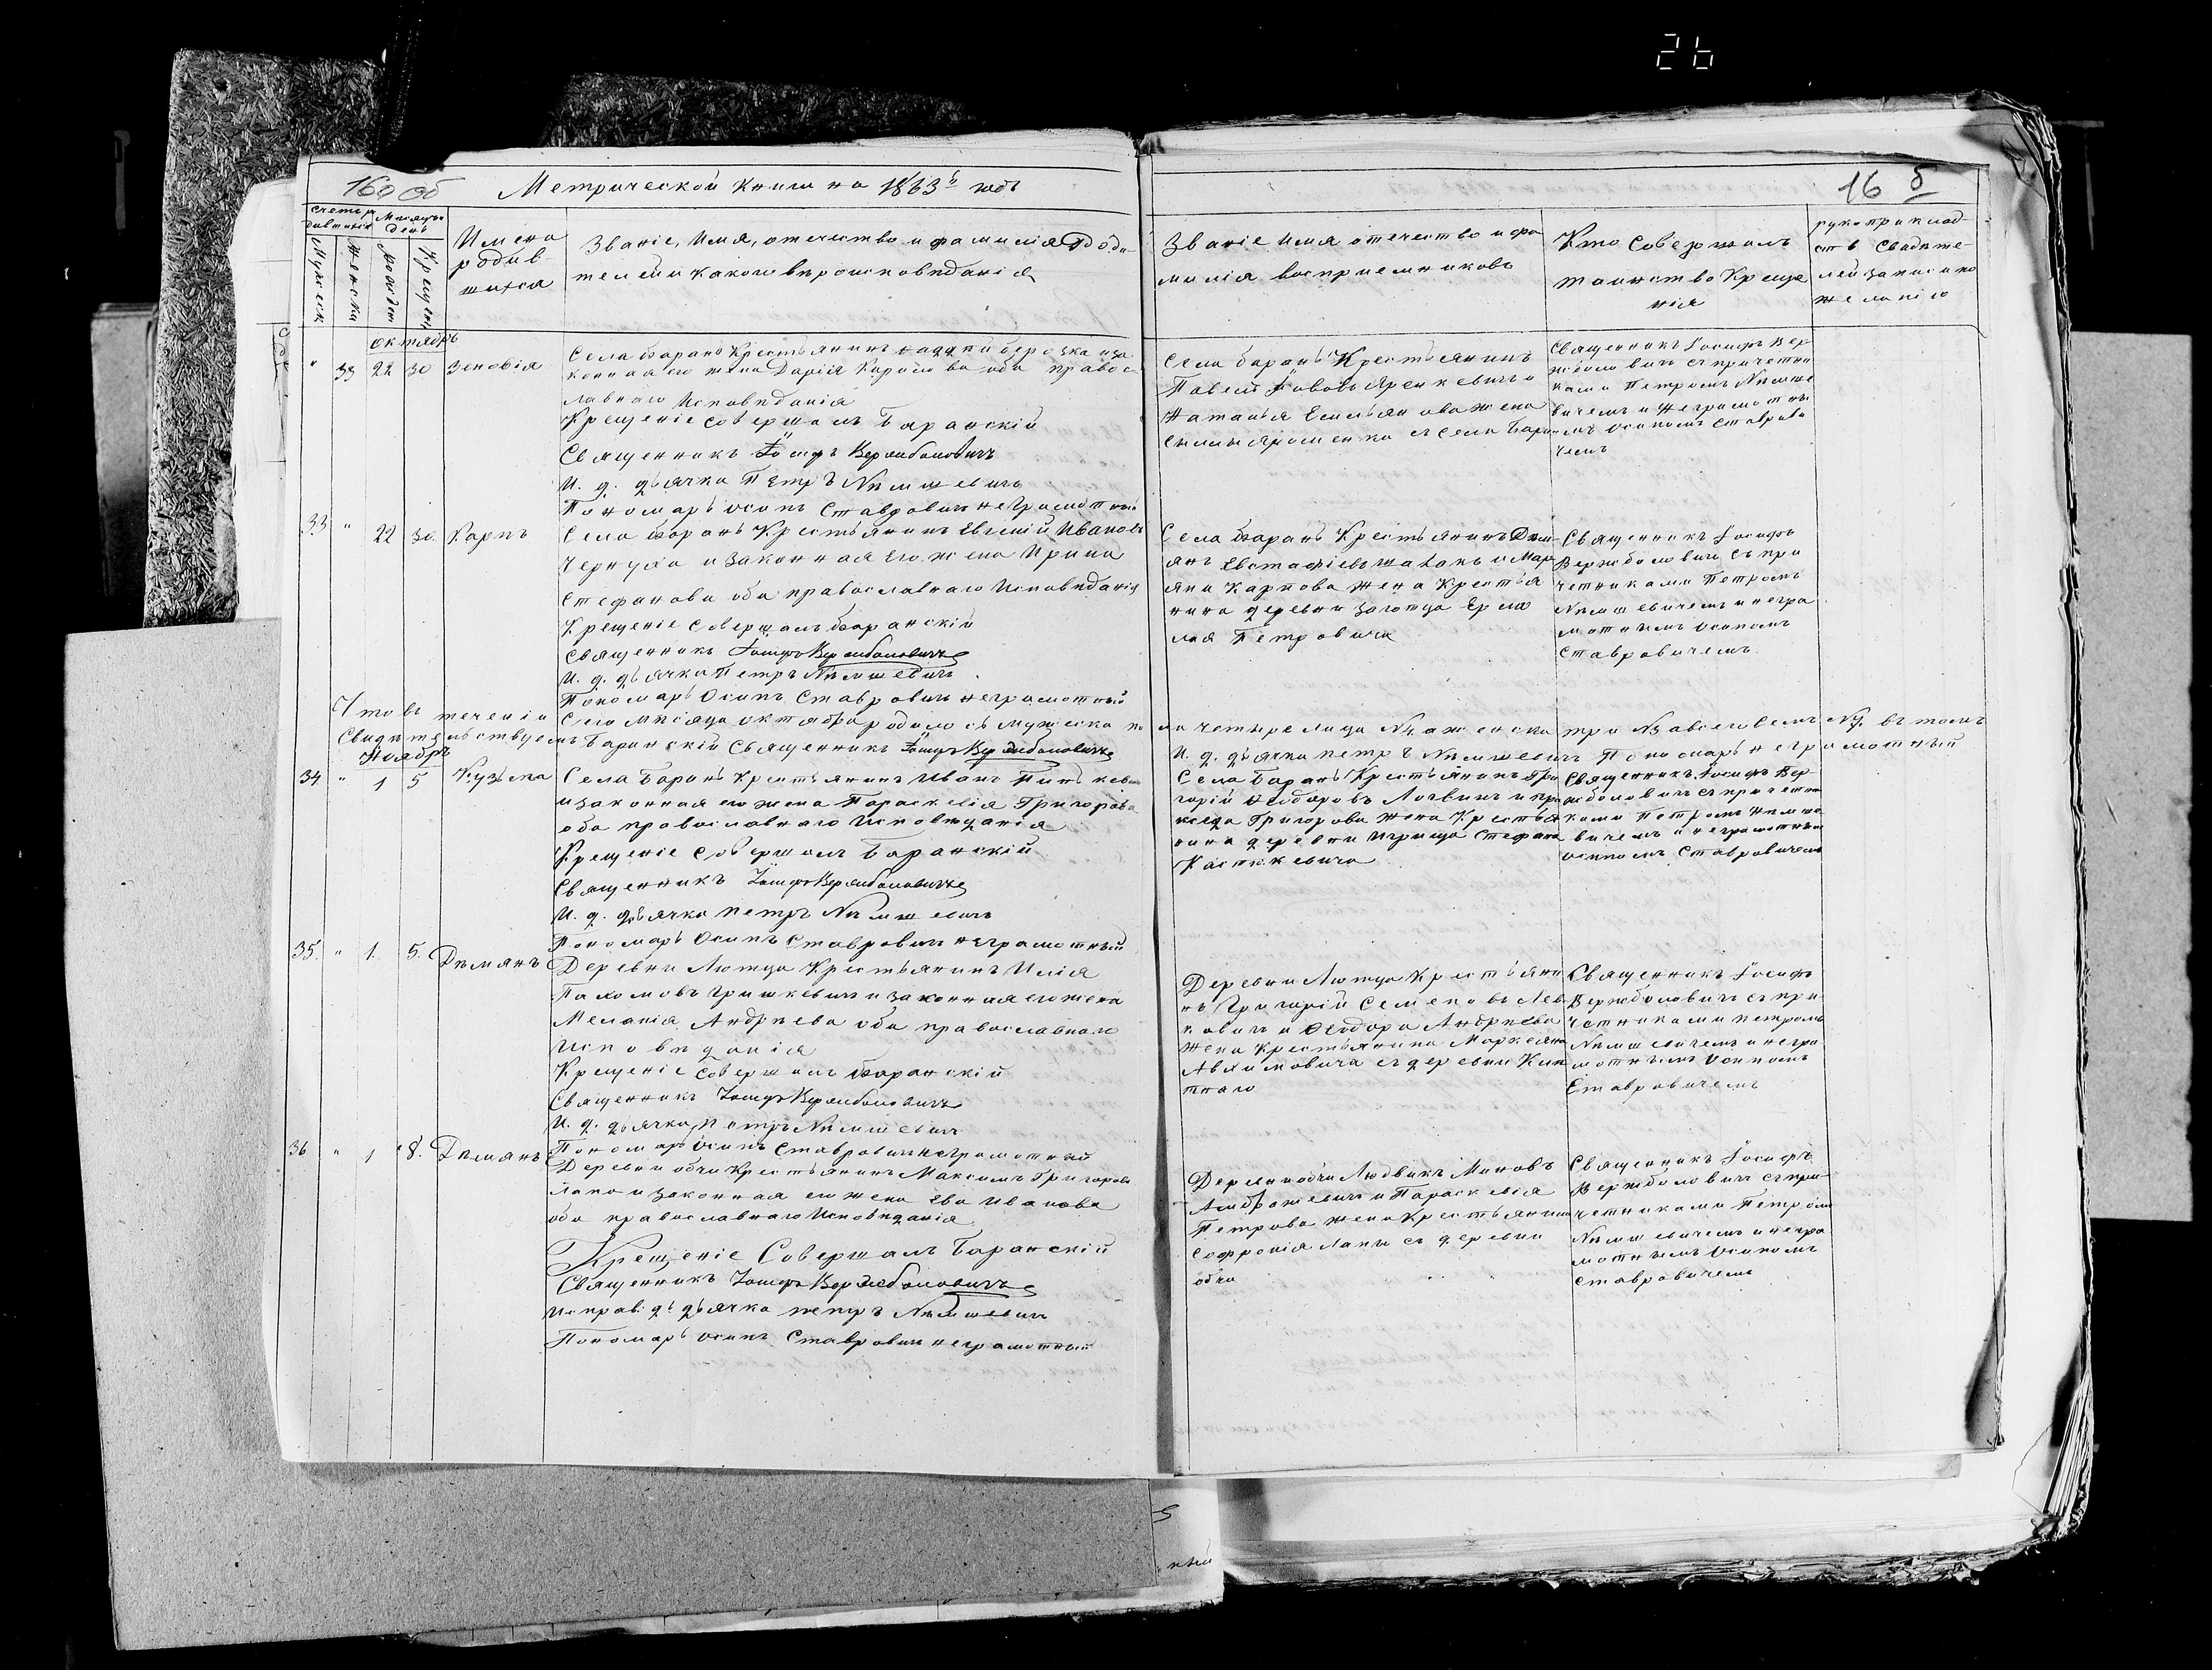 26
160 об
Метрической книги на 1863й годъ
16 б
счетъ р
Месяцъ
день
Мужеск
Женска
рожден
Крещен
Имена
родив
шихся
Званіе, Имя, отечество и фамилія Роди
телей и какого вероисповеданія
Званіе имя отечество и фа
милія воспріемниковъ
Кто Совершалъ
таинство Креще
нія
рукоприклад
ство Свидете
лей записи по
желанію
октябрь
" 33 22 30 Зеновія
Села Барань Крестьянинъ Фаддей Березка и за
конная его жена Дарія Карпова оба правос
лавнаго Исповеданія
Крещеніе совершалъ Баранскій
Священникъ Іосифъ Вержболовичъ
И. д. дьячка Петръ
Пономарь Осипъ Ставровичъ неграмотный
Села Барань Крестьянинъ
Павелъ
Наталья Емельянова жена
с Села Бара
Священникъ Іосифъ Вер
жболовичъ съ причетни
ками Петромъ
вичемъ и неграмотны
мъ Осипомъ Ставрови
чемъ
33 " 22 30 Карпъ
Села Барань Крестьянинъ Евсевій Ивановъ
Чернуха и Законная его жена Ирина
Стефанова оба православнаго Исповеданія
Крещеніе совершалъ Баранскій
Священникъ Іосифъ Вержболовичъ
И. д. дьячка Петръ
Пономарь Осипъ Ставровичъ неграмотный
Села Барань Крестьянинъ Деми
янъ Евстафіевъ и Мар
Карпова жена Крестья
нина деревни Ермо
лая Петровича
Священникъ Іосифъ
Вержболовичъ съ при
четниками Петромъ
и негра
мотнымъ Осипомъ
Ставровичемъ
Что въ теченіи Сего месяца октября родилось мужеска по ла четыре лица №4 а женска три №3 а всего Семь №7. въ томъ
Свидетельствуемъ Баранскій Священникъ Іосифъ Вержболовичъ И. д. дьячка Петръ Пономарь неграмотный
Ноябрь
34 " 1 5 Кузьма
Села Барань Крестьянинъ Иванъ
и законная его жена Параскевія Григорова
оба православнаго Исповеданія
Крещеніе Совершалъ Баранскій
Священникъ Іосифъ Вержболовичъ
И. д. дьячка Петръ
Пономарь Осипъ Ставровичъ неграмотный
Села Барань Крестьянинъ Гри
горій Феодоровъ и пра
кседа Григорова жена Крестья
нина деревни Игрища Стефана
Костюкевича
Священникъ Іосифъ Вер
жболовичъ съ причетни
ками Петромъ
вичемъ и неграмотным
Осипомъ Ставровичемъ
35. " 1. 5. Демянъ
Деревни Лютца Крестьянинъ Илія
Пахомовъ Гришкевичъ и законная его жена
Меланія Андреева оба православнаго
Исповеданія
Крещеніе совершалъ Баранскій
Священникъ Іосифъ Вержболовичъ
И. д. дьячка Петръ
Пономарь Осипъ Ставровичъ неграмотный
Деревни Лютца Крестьяни
нъ Григорій Семеновъ Лев
ковичъ и Феодора Андреева
жена Крестьянина
съ деревни
Священникъ Іосифъ
Вержболовичъ съ при
четниками Петромъ
и негра
мотнымъ Осипомъ
Ставровичемъ
36 " 1 8. Демянъ
Деревни обчи Крестьянинъ Максимъ Григоровъ
Лапо и законная его жена Ева Иванова
оба православнаго Исповеданія
Крещеніе Совершалъ Баранскій
Священникъ Іосифъ Вержболовичъ
Исправ. д. дьячка петръ
Пономарь Осипъ Ставровичъ неграмотный
Деревни обчи Людвикъ Миновъ
и Параскевія
Петрова жена Крестьянина
Софронія Лапы съ деревни
обчи
Священникъ Іосифъ
Вержболовичъ съ при
четниками Петромъ
и негра
мотнымъ Осипомъ
Ставровичемъ
ный